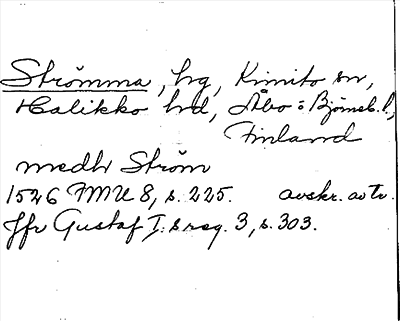 Strömma, hg, Kimito sn,
Halikko hd, Åbo o Björneb. l,
Finland
medh Ström
1526 FMU 8, s. 225. avskr. av tr.
Jfr Gustaf I:s reg. 3, s. 303.